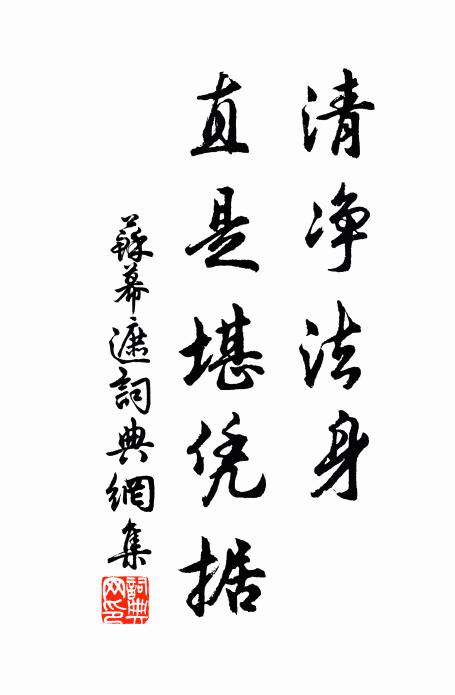 清净法身
直是堪凭据
蘇幕遮詞典網集
詞典網印